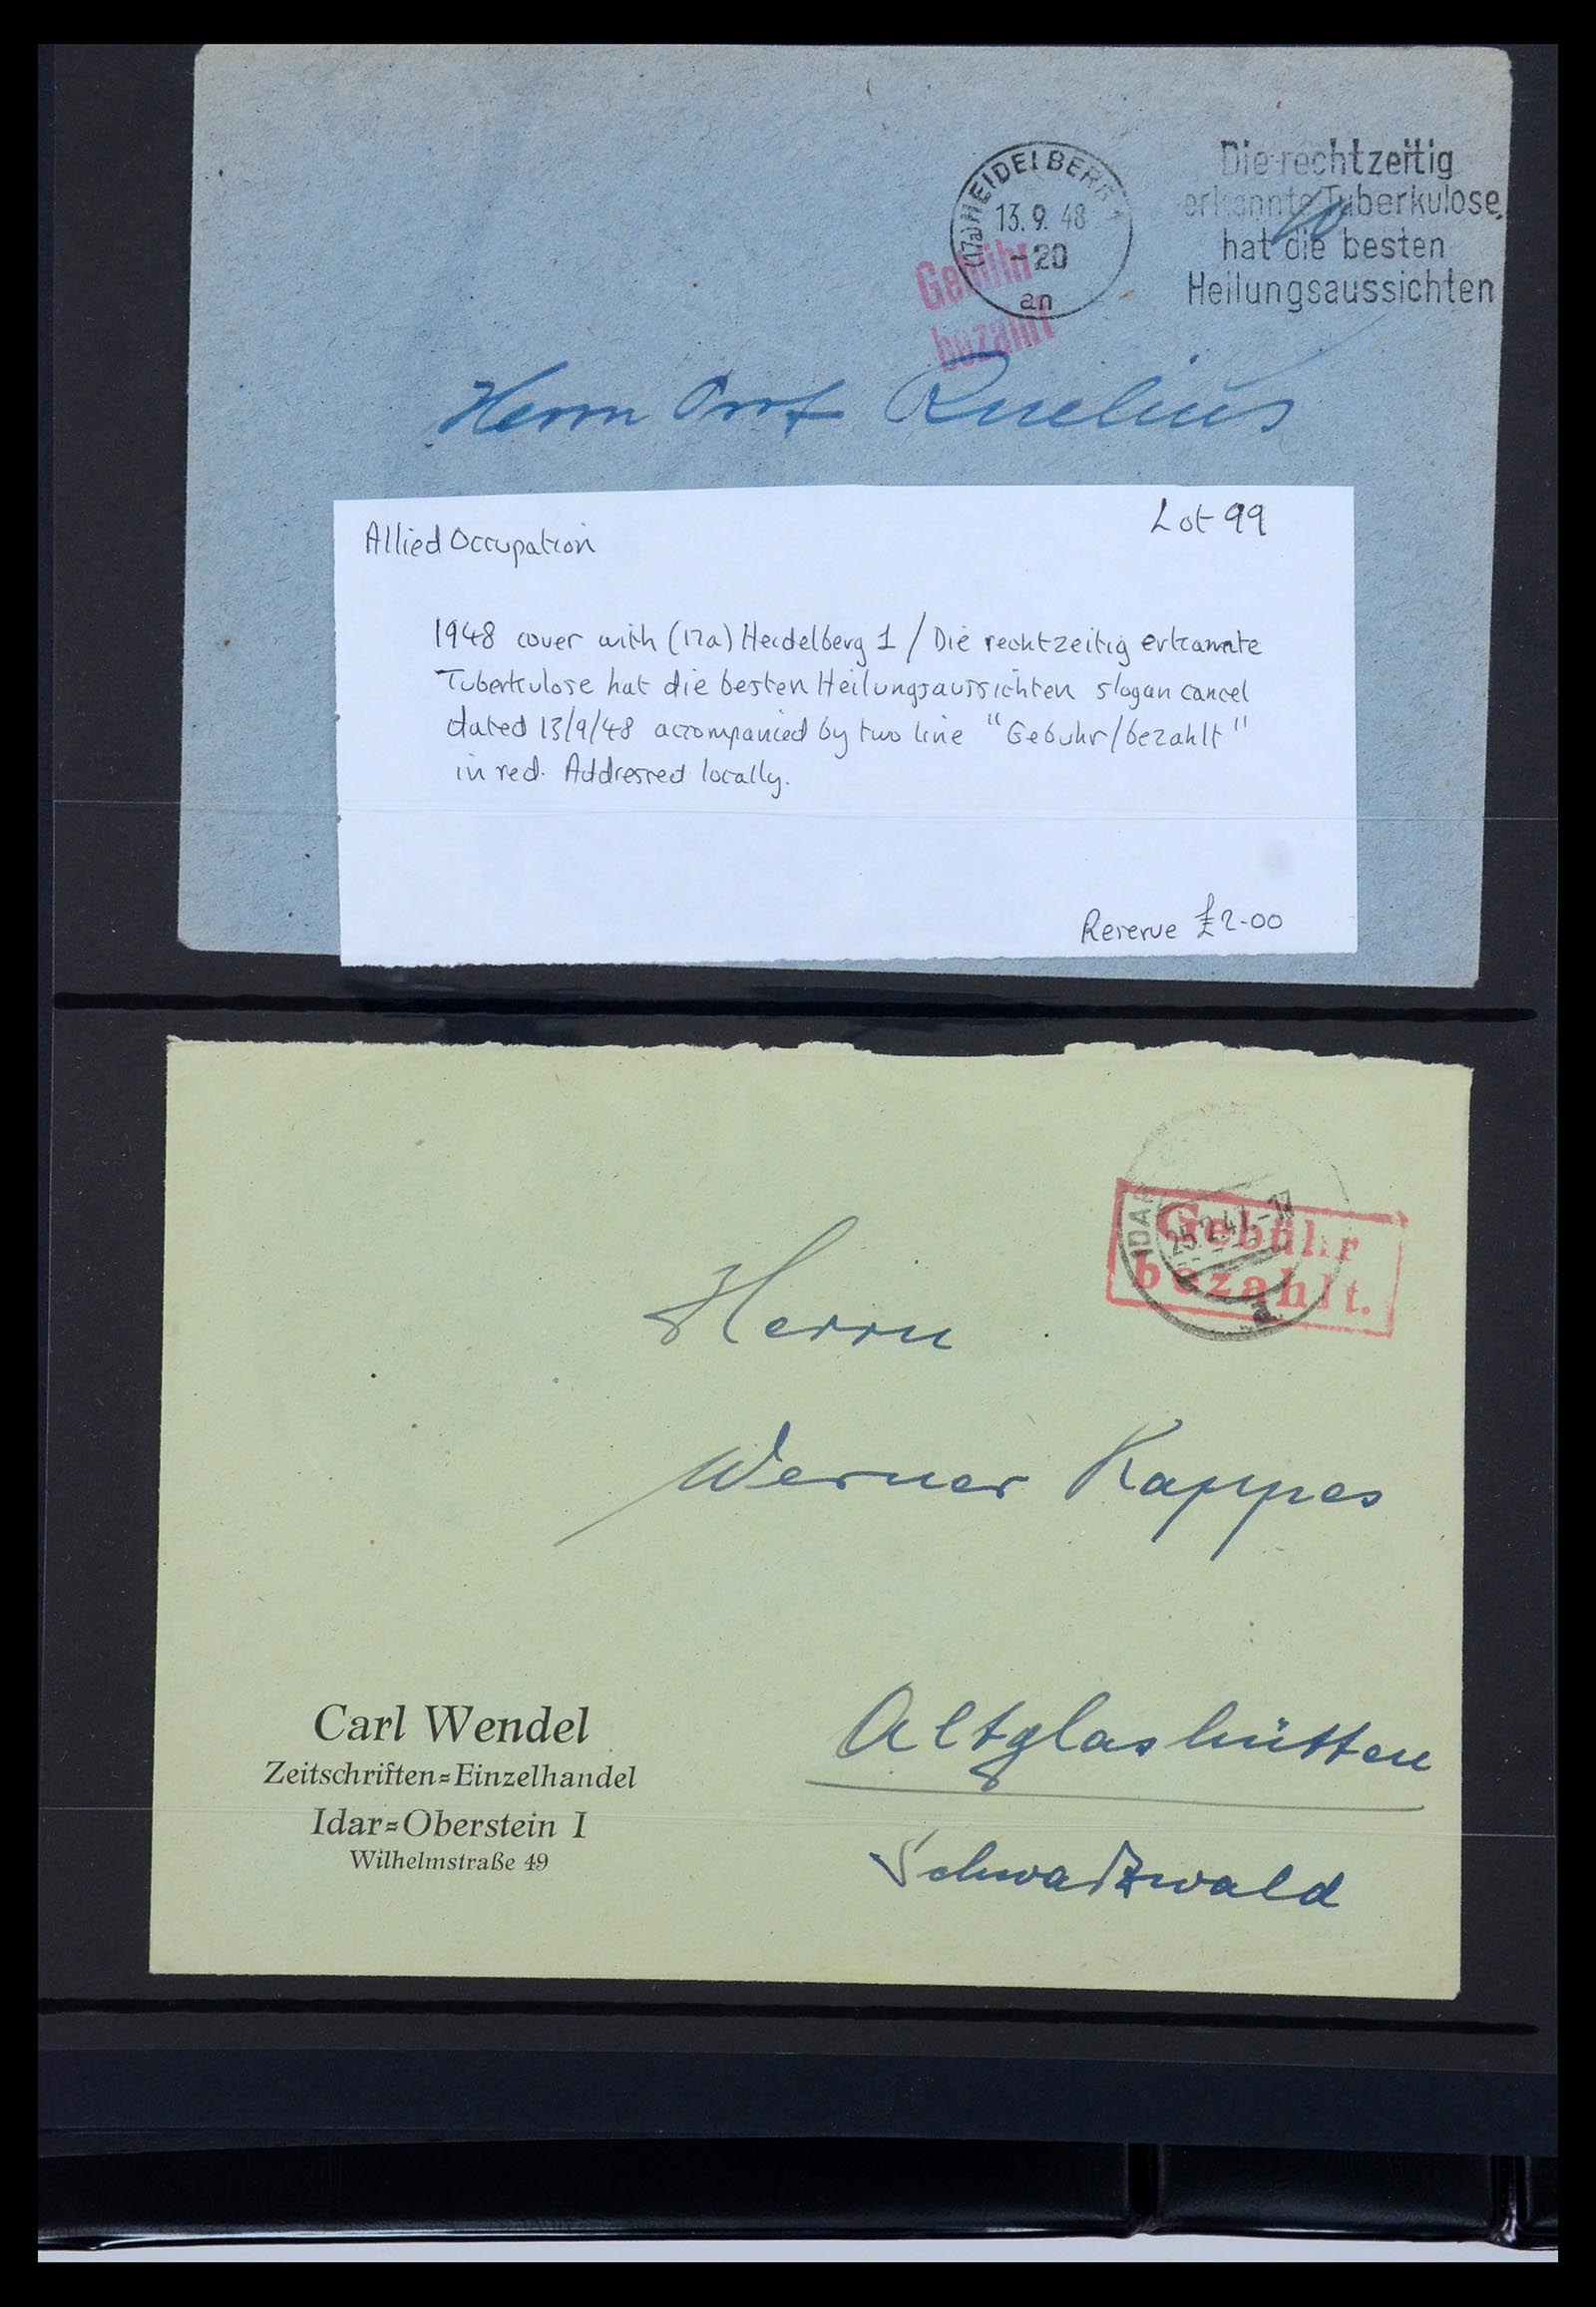 (17a) HEIDELBERG 1
13.9.48
-20
an
Die rechtzeitig
erkannte Tuberkulose
hat die besten
Heilungsaussichten
Gebühr
bezahlt
Herrn
Lot 99
Allied Occupation
1948 cover with (17a) Heidelberg 1 / Die rechtzeitig erkannte
Tuberkulose hat die besten Heilungsaussichten slogan cancel
dated 13/9/48 accompanied by two line "Gebuhr/bezahlt"
in red. Addressed locally.
Reserve £2-00
IDAR
25.2.47.-17
Gebühr
bezahlt.
Herrn
Werner Kappes
Carl Wendel
Zeitschriften=Einzelhandel
Idar=Oberstein I
Wilhelmstraße 49
Altglashütten
Schwarzwald